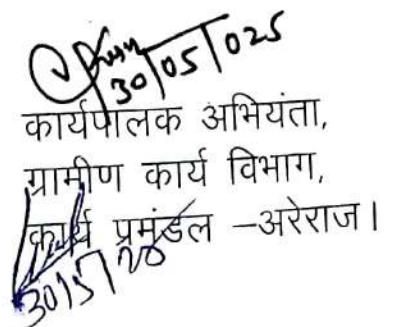 30/05/025
कार्यपालक अभियंता,
ग्रामीण कार्य विभाग,
कार्य प्रमंडल –अरेराज।